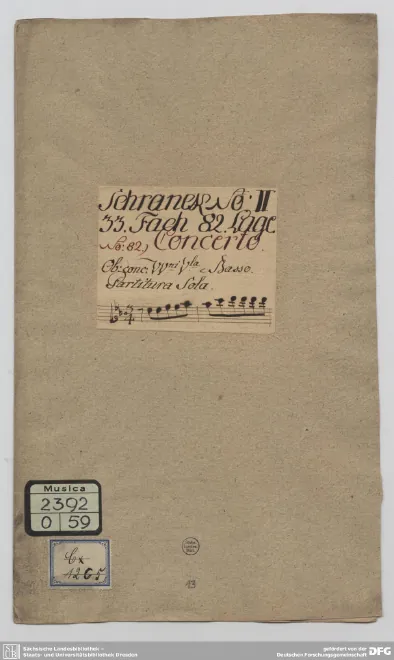 Schranck No: II
33. Fach 82. Lage
No: 82.) Concerto.
Ob: conc: VVni Vla e Basso.
Partitura Sola.
Musica
2392
O 59
Cx
1265
Sächsische Landesbibliothek –
Staats- und Universitätsbibliothek Dresden
gefördert von der
Deutschen Forschungsgemeinschaft
DFG